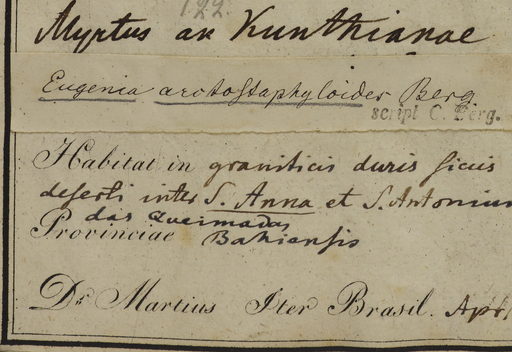 122
Myrtus an Kunthianae
Eugenia arctostaphyloides Berg
script C. Berg.
Habitat in graniticis duris siccis
deserti inter S. Anna et S. Antonium
das Queimadas
Provinciae Bahiensis
Dr Martius Iter Brasil.